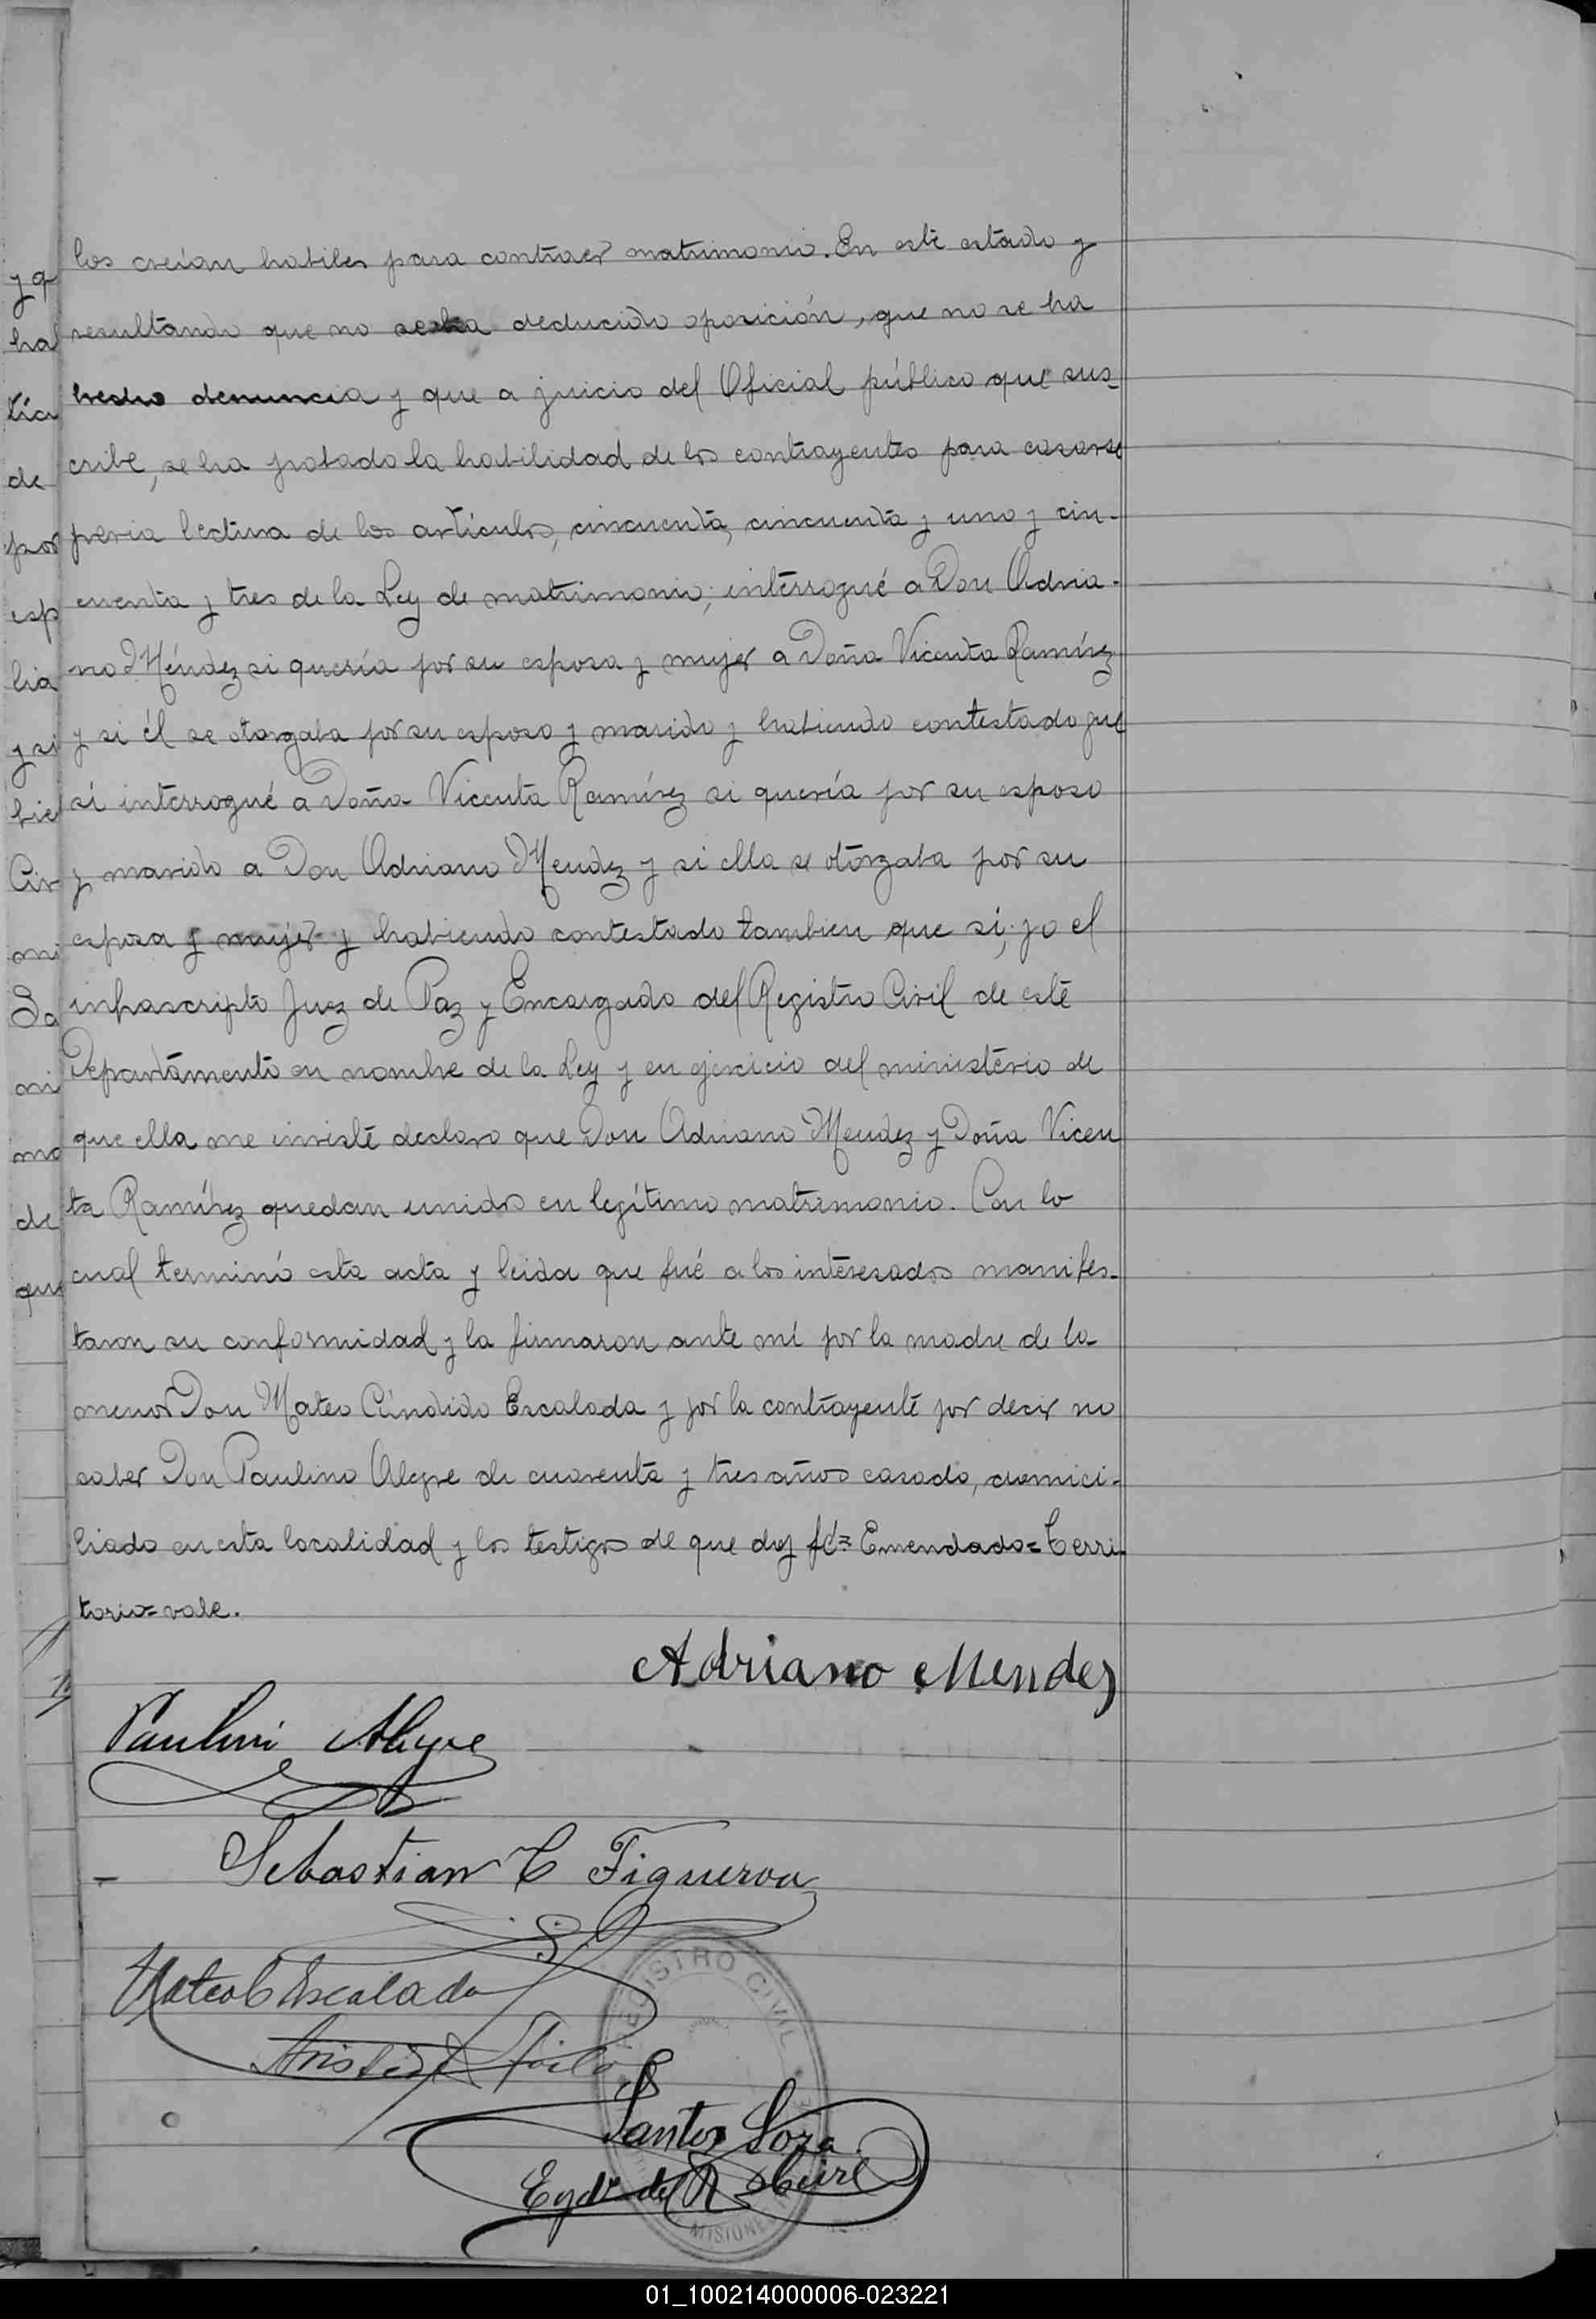 los creían habiles para contraer matrimonio. En este estado y
resultando que no se ha deducido oposición, que no se ha
hecho denuncia y que a juicio del Oficial público que sus-
cribe, se ha probado la habilidad de los contrayentes para casarse
previa lectura de los artículos, cincuenta, cincuenta y uno y cin-
cuenta y tres de la Ley de matrimonio; interrogué a Don Adria-
no Méndez si quería por su esposa y mujer a Doña Vicenta Ramírez
y si él se otorgaba por su esposo y marido y habiendo contestado que
sí interrogué a Doña Vicenta Ramírez si quería por su esposo
y marido a Don Adriano Mendez y si ella se otorgaba por su
esposa y mujer y habiendo contestado tambien que sí; yo el
infrascripto Juez de Paz y Encargado del Registro Civil de este
Departamento en nombre de la Ley y en ejercicio del ministerio de
que ella me inviste declaro que Don Adriano Mendez y Doña Vicen
ta Ramírez quedan unidos en legítimo matrimonio. Con lo
cual terminó esta acta y leida que fué a los interesados manifes-
taron su conformidad y la firmaron ante mí por la madre de la
menor Don Mateo Cándido Escalada y por la contrayente por decir no
saber Don Paulino Alegre de cuarenta y tres años casado, domici-
liado en esta localidad y los testigos de que doy fé= Emendado= Terri-
torio= vale.
Adriano Mendez
Paulino Alegre
Sebastian C Figueroa
Mateo C Escalada
Santos Loza
Egdo del R Civil
REGISTRO CIVIL
MISIONES
y q
ha
tic
de
por
esp
lia
y si
bie
Cir
mi
Sa
ni
mo
de
que
01_100214000006-023221